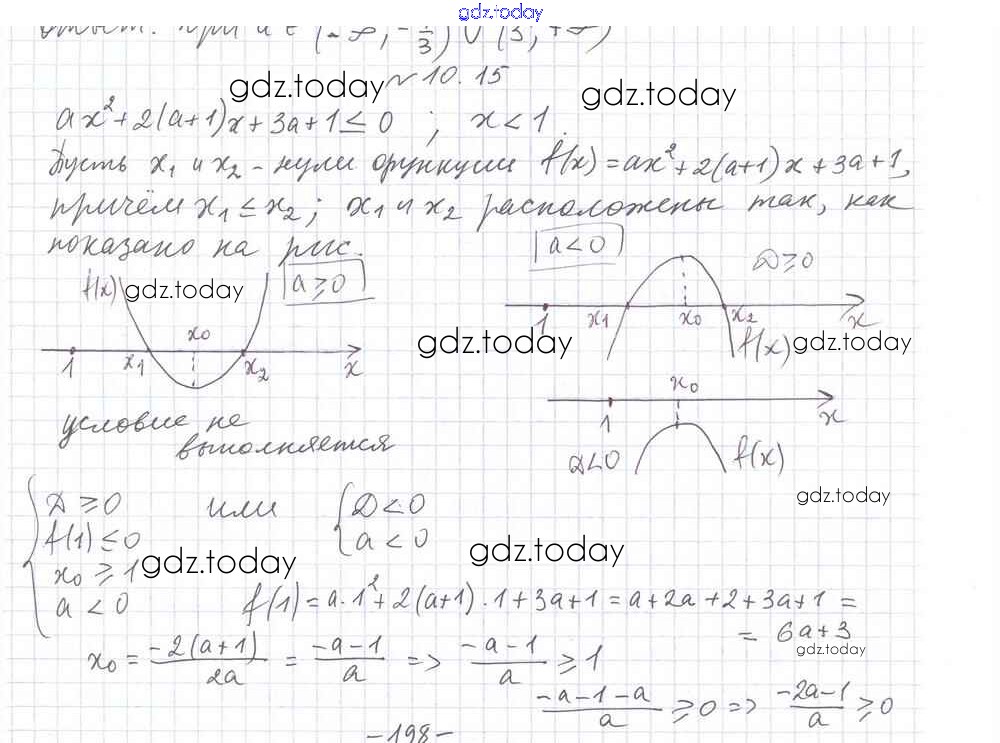 gdz.today
Ответ: при a ∈ (-∞; -1/3) ∪ (3; +∞)
№ 10.15
gdz.today gdz.today
ax² + 2(a+1)x + 3a+1 ≤ 0 ; x < 1.
Пусть x₁ и x₂ - нули функции f(x) = ax² + 2(a+1)x + 3a+1,
причём x₁ ≤ x₂; x₁ и x₂ расположены так, как
показано на рис.
a < 0
D ≥ 0
f(x) gdz.today a ≥ 0
x₀
1 x₁ x₂ x
1 x₁ x₀ x₂ x
gdz.today f(x) gdz.today
условие не
выполняется
x₀
1 x
D < 0 f(x)
gdz.today
D ≥ 0 или D < 0
f(1) ≤ 0 a < 0
gdz.today gdz.today
x₀ ≥ 1
a < 0 f(1) = a·1² + 2(a+1)·1 + 3a+1 = a+2a+2+3a+1 =
= 6a+3
gdz.today
x₀ = -2(a+1)/2a = -a-1/a => -a-1/a ≥ 1
-a-1-a/a ≥ 0 => -2a-1/a ≥ 0
-198-